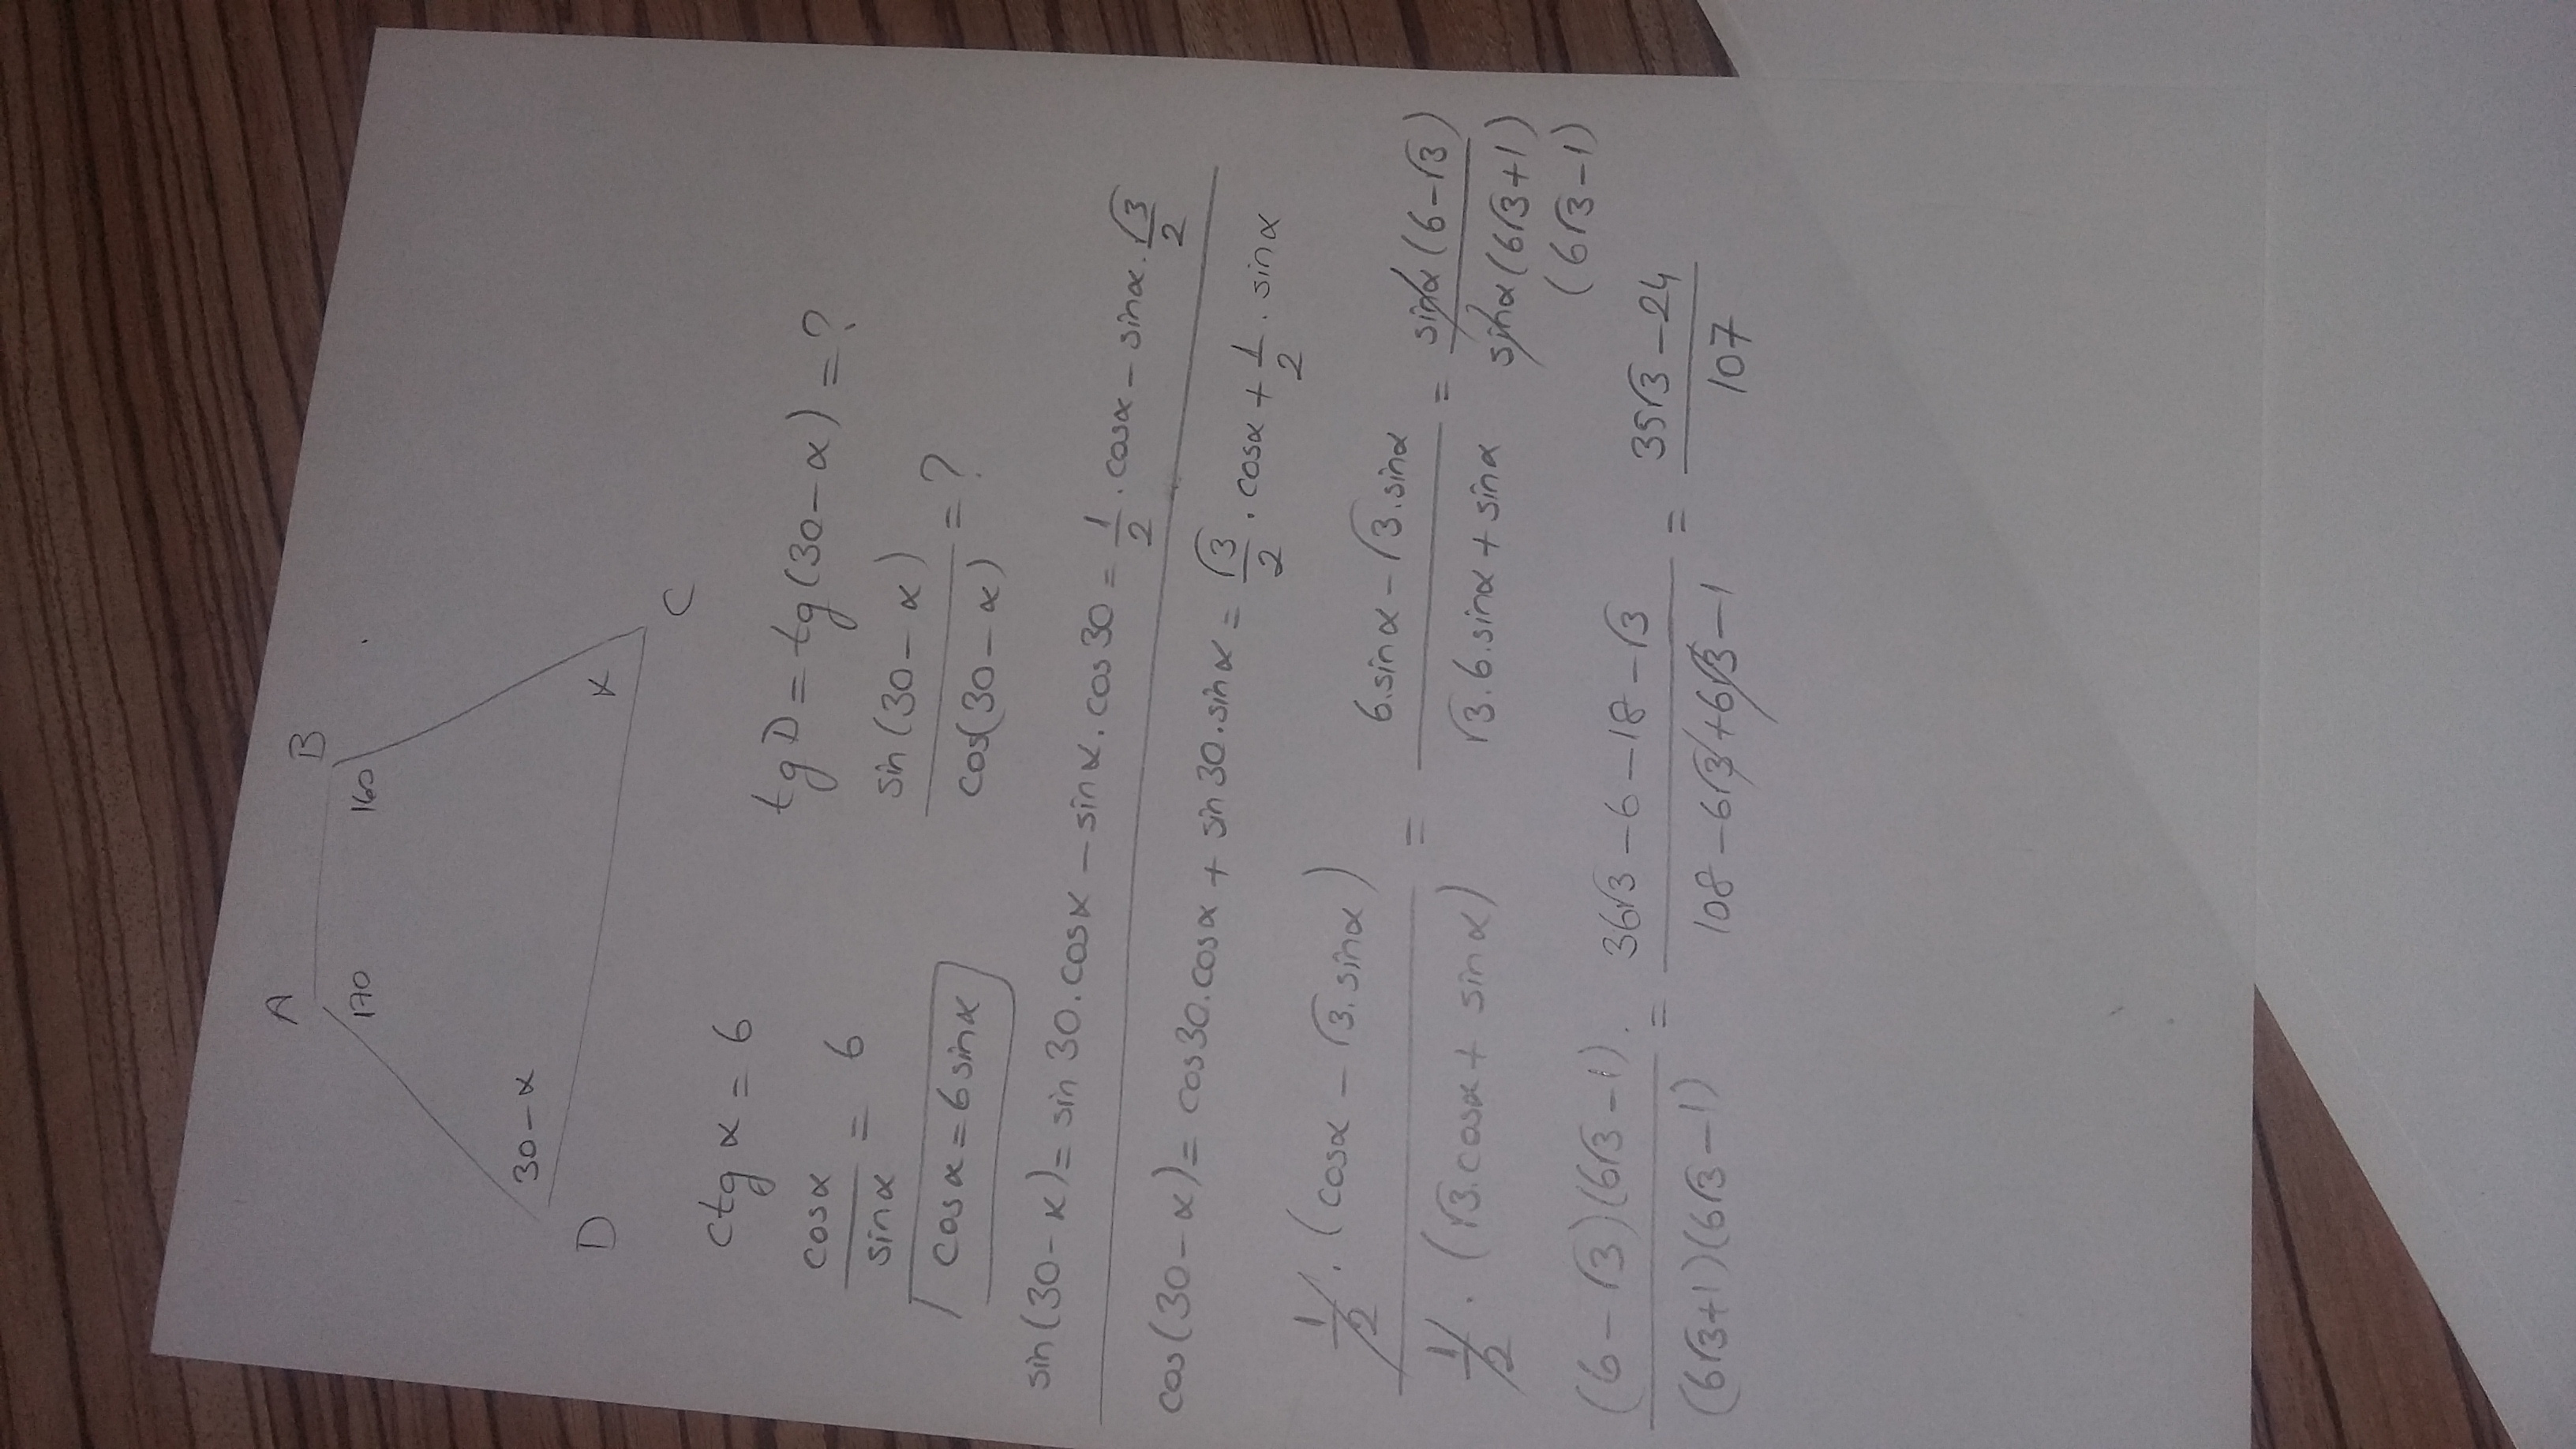 A B
170 160
30-α α
D C
ctg α = 6 tg D = tg (30-α) = ?
cosα / sinα = 6 sin(30-α) / cos(30-α) = ?
cosα = 6 sinα
sin(30-α) = sin 30.cosα - sinα.cos30 = 1/2 . cosα - sinα.√3/2
cos(30-α) = cos30.cosα + sin30.sinα = √3/2 . cosα + 1/2 . sinα
1/2 . (cosα - √3.sinα) / 1/2 . (√3.cosα + sinα) = 6.sinα - √3.sinα / √3.6.sinα + sinα = sinα(6-√3) / sinα(6√3+1)
(6√3-1)
(6-√3)(6√3-1) . / (6√3+1)(6√3-1) = 36√3-6-18-√3 / 108-6√3+6√3-1 = 35√3-24 / 107